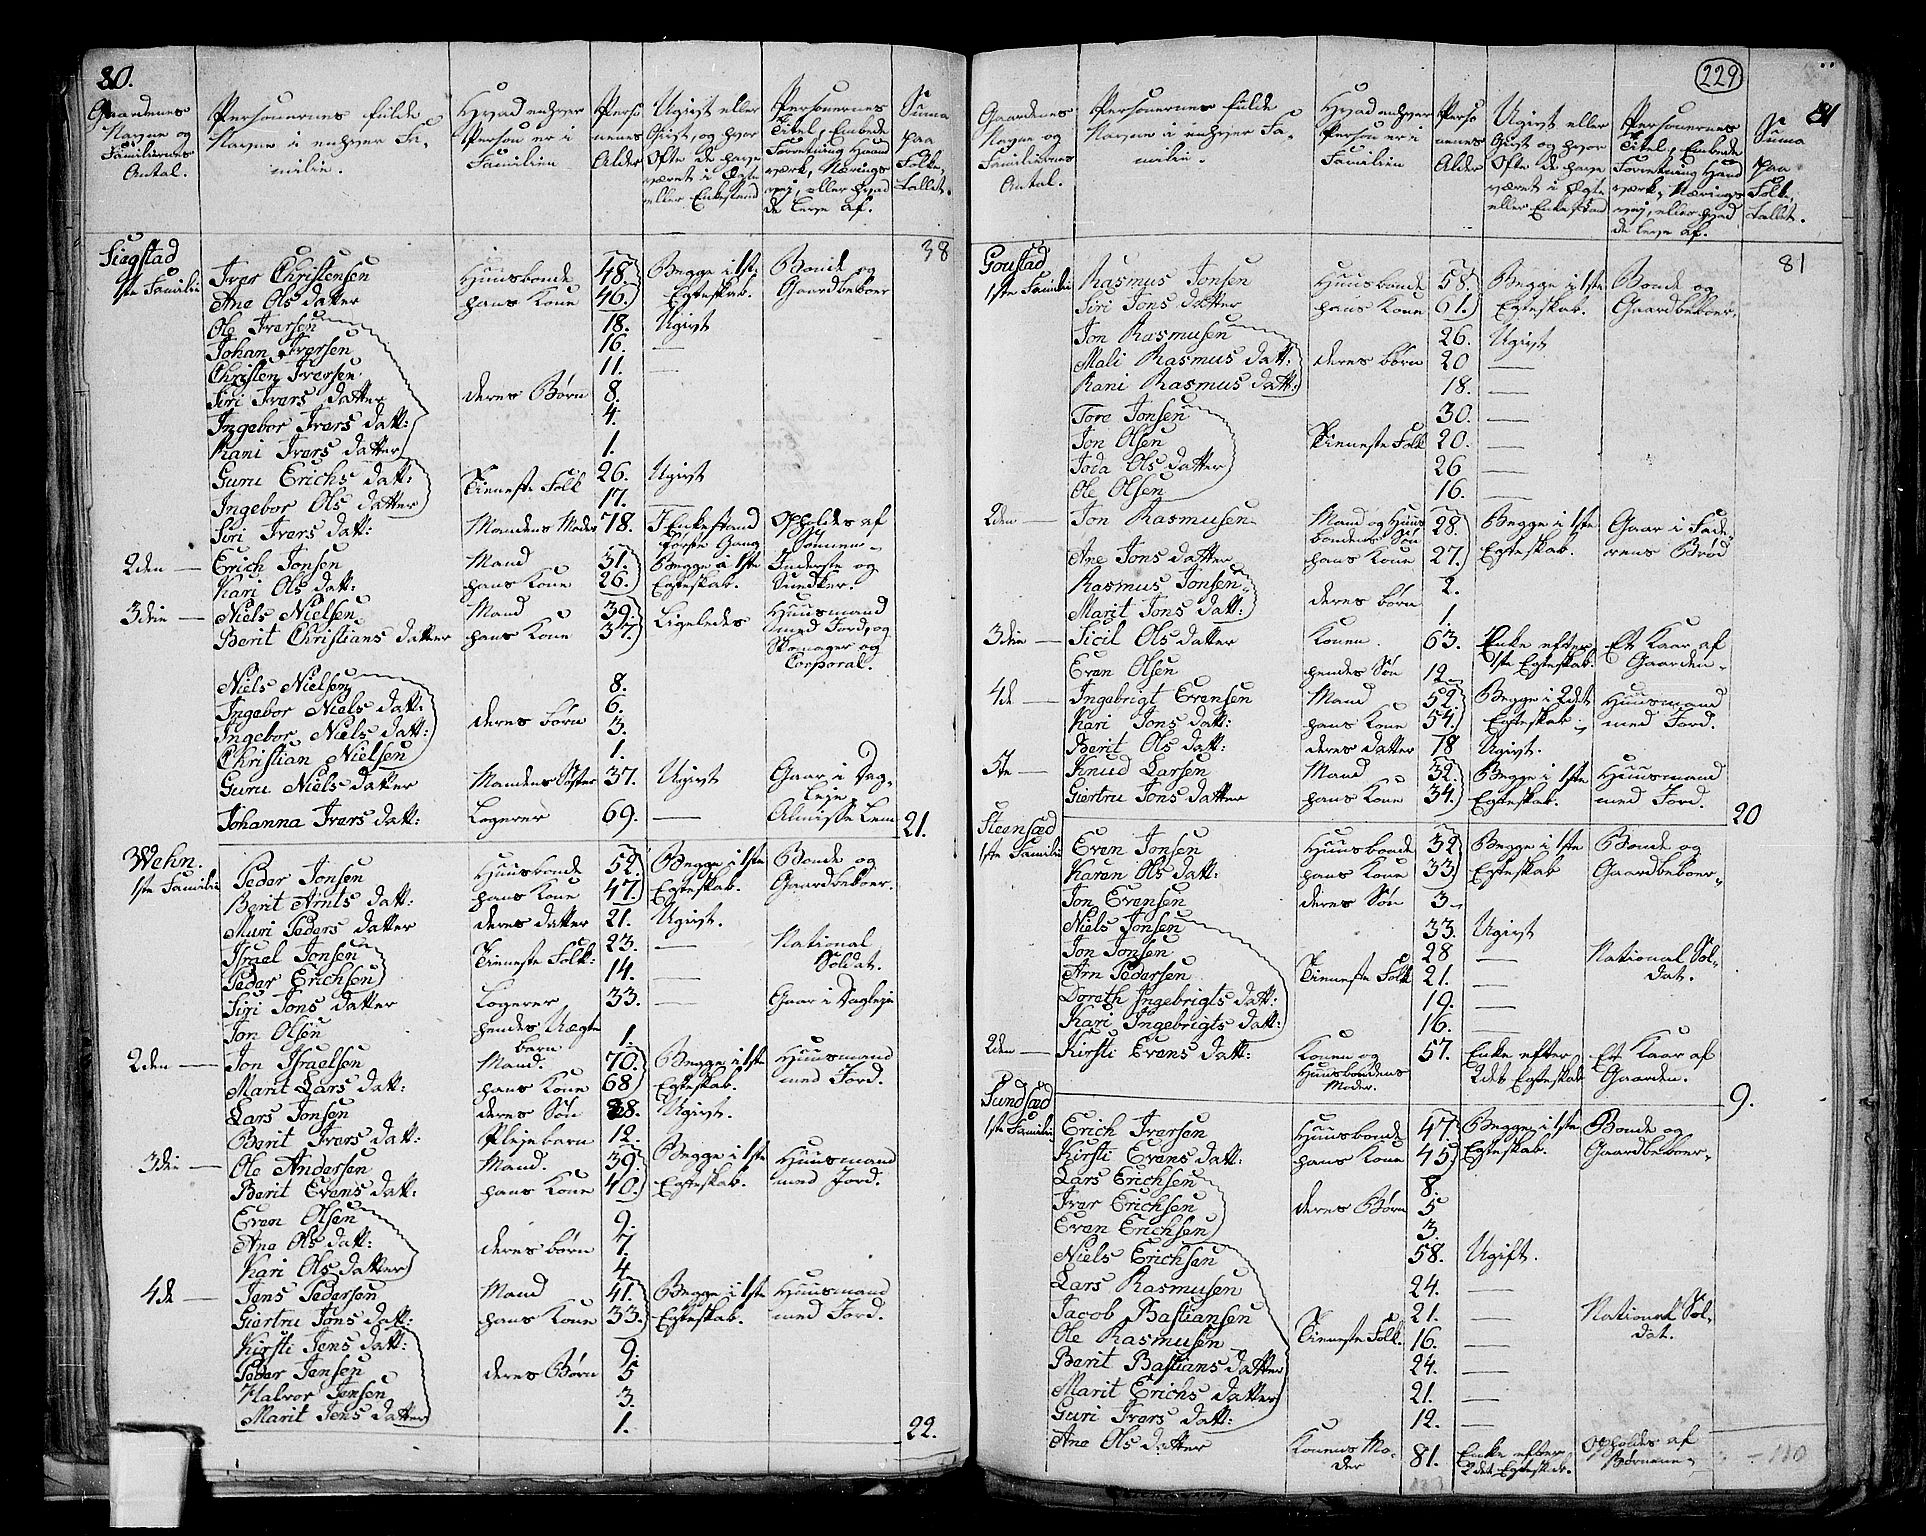 80.
Gaardenes Navne og Familiernes Antal. Personernes fulde Navne i enhver Familie. Hvad enhver Person er i Familien Personenes Alder Ugivt eller Givt, og hvor Ofte de have været i Egte eller Enkestand Personernes Titel, Embede Forretning Haandværk, Nærings vej, eller hvad de leve af. Suma paa Folke Tallet.
38
Siegstad
1ste Familie Iver Christensen Huusbonde 48. Begge i 1ste Bonde og
Ane Ols datter hans Kone 46. Egteskab. Gaardbeboer
Ole Iversen 18. Ugivt
Johan Iversen 16. —
Christen Iversen 11. —
Siri Ivers datter deres Børn 8.
Ingebor Ivers datt: 4.
Rani Ivers datter 1.
Guru Erichs datt: Tieneste Folk 26. Ugivt
Ingebor Ols datter 17.
Siri Ivers datt: Mandens Moder 78. I Enkestand Opholdes af
første Gang Sønnen
2den — Erich Jonsen Mand 31. Begge i 1ste Inderste og
Kari Ols datt: hans Kone 26. Egteskab. Snedker.
3die — Niels Nielsen Mand 39. Ligeledes Huusmand
Berit Christians datter hans Kone 37. med Jord, og
Skomager og
Corporal.
Niels Nielsen 8.
Ingebor Niels datt: deres børn 6.
Ingebor Niels datt: 3.
Christian Nielsen 1.
Guru Niels datter Mandens Søster 37. Ugivt Gaar i Dag-
leje
Johanna Ivers datt: Logerer 69. — Almisse Lem 21.
Wehn.
1ste Familie Peder Jonsen Huusbonde 52. Begge i 1ste Bonde og
Berit Arnts datt: hans Kone 47. Egteskab. Gaardbeboer.
Muri Peders datter deres datter 21. Ugivt.
Israel Jonsen Tieneste Folk: 23. — National
Soldat.
Peder Erichsen 14. —
Siri Jons datter Logerer 33. — Gaar i Dagleje
Jon Olsen hendes Uægte 1.
barn.
2den — Jon Israelsen Mand. 70. Begge i 1ste Huusmand
Marit Lars datt: hans Kone 68 Egteskab. med Jord.
Lars Jonsen deres Søn 28. Ugivt.
Berit Ivers datt: Plejebarn 12.
3die — Ole Andersen Mand. 39. Begge i 1ste Huusmand
Berit Evens datt: hans Kone 40. Egteskab. med Jord.
Even Olsen 9.
Ane Ols datt: deres børn 7.
Kari Ols datter 4.
4de — Jens Pedersen Mand 41. Begge i 1ste Huusmand
Giertru Jons datt: hans Kone 33. Egteskab. med Jord.
Kirsti Jens datt: 9.
Peder Jensen deres Børn 5
Halvor Jensen 3.
Marit Jens datter 1. 22.
229
81
Gaardenes Navne og Familiernes Antal. Personernes fulde Navne i enhver Familie. Hvad enhver Person er i Familien Personenes Alder Ugivt eller Givt og hvor Ofte de have været i Egte eller Enkestand Personernes Titel, Embede Forretning Hand værk, Nærings vej, eller hvad de leve af. Suma paa Folke Tallet.
81
Goustad
1ste Familie Rasmus Jonsen Huusbonde 58. Begge i 1ste Bonde og
Siri Jons datter hans Kone 61. Egteskab. Gaardbeboer.
Jon Rasmusen 26. Ugivt
Mali Rasmus datt: deres børn 20 —
Rani Rasmus datt: 18. —
Tore Jonsen 30. —
Jon Olsen Tieneste Folk 20. —
Joda Ols datter 26 —
Ole Olsen 16. —
2den — Jon Rasmusen Mand og Huus 28. Begge i 1ste Gaar i Fade-
bondens Søn
Ane Jons datter hans Kone 27. Egteskab. rens Brød
Rasmus Jonsen deres børn 2.
Marit Jons datt: 1.
3die — Sicil Ols datter Konen 63. Enke efter Et Kaar af
1ste Egteskab. Gaarden
Even Olsen hendes Søn 12
4de — Ingebrigt Evensen Mand 52. Begge i 2det Huusmand
Kari Jons datt: hans Kone 54. Egteskab med Jord.
Berit Ols datt: deres datter 18 Ugivt.
5te — Knud Larsen Mand 32. Begge i 1ste Huusmand
Giertru Jons datter hans Kone 34. Egteskab. med Jord. 20
Steensæd
1ste Familie Even Jonsen Huusbonde 32 Begge i 1ste Bonde og
Karen Ols datt: hans Kone 33 Egteskab Gaardbeboer
Jon Evensen deres Søn 3
Niels Jonsen 33. Ugivt
Jon Jonsen 28 — National Sol-
dat.
Arn Pedersen Tieneste Folk 21. —
Dorath Ingebrigts datt: 19. —
Kari Ingebrigts datt: 16. —
2den — Kirsti Evens datt: Konen og 57. Enke efter Et Kaar af
Huusbondens 2det Egteskab Gaarden.
Moder. 9.
Sundsæd
1ste Familie Erich Iversen Huusbonde 47. Begge i 1ste Bonde og
Kirsti Evens datt: hans Kone 45. Egteskab. Gaardbeboer
Lars Erichsen 8.
Iver Erichsen deres Børn 5
Even Erichsen 3.
Niels Erichsen 58. Ugift.
Lars Rasmusen 24. —
Jacob Bastiansen 21. — National Sol-
dat.
Ole Rasmusen Tieneste Folk 16. —
Berit Bastians datter 24. —
Marit Erichs datter 21. —
Guri Ivers datt: 12. —
Ane Ols datter Konens Mo- 81. Enke efter Opholdes af
der 2det Egteskab. Børnene
110